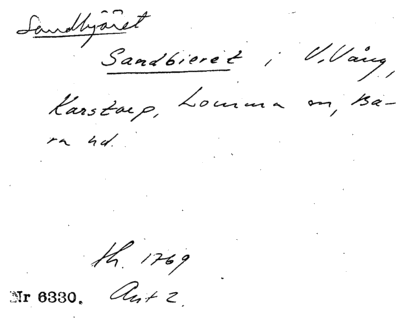 Sandbjäret
Sandbieret i V. Vång,
Karstorp, Lomma sn, Ba-
ra hd.
th. 1769
Nr 6330. Ant 2.